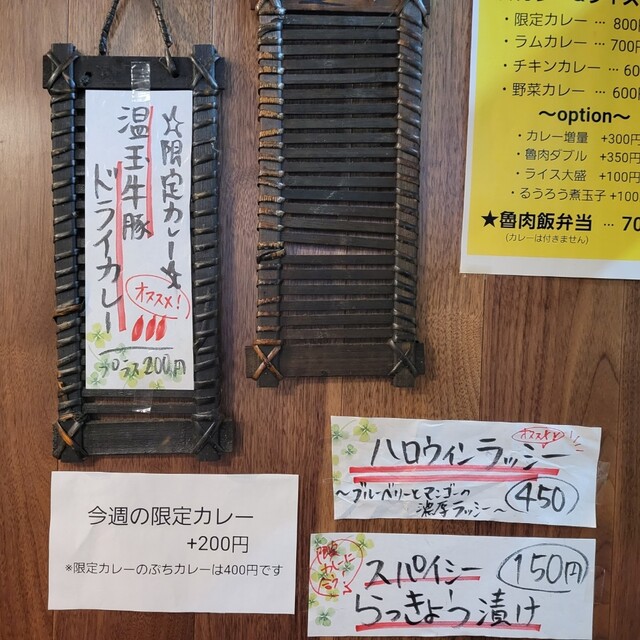 ☆限定カレー☆
温玉牛豚
ドライカレー
オススメ!
プラス200円
・限定カレー … 800
・ラムカレー … 700
・チキンカレー … 60
・野菜カレー … 600
～option～
・カレー増量 +300円
・魯肉ダブル +350円
・ライス大盛 +100円
・るうろう煮玉子 +100
★魯肉飯弁当 … 70
(カレーは付きません)
今週の限定カレー
+200円
*限定カレーのぷちカレーは400円です
ハロウィンラッシー
～ブルーベリーとマンゴーの
濃厚ラッシー～
450
スパイシー
らっきょう漬け
150円